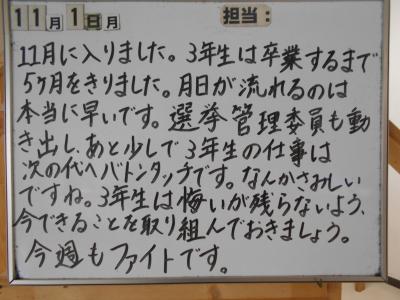 11月1日月 担当:
11月に入りました。3年生は卒業するまで
5ヶ月をきりました。月日が流れるのは
本当に早いです。選挙管理委員も動
き出し、あと少しで3年生の仕事は
次の代へバトンタッチです。なんかさみしい
ですね。3年生は悔いが残らないよう、
今できることを取り組んでおきましょう。
今週もファイトです。